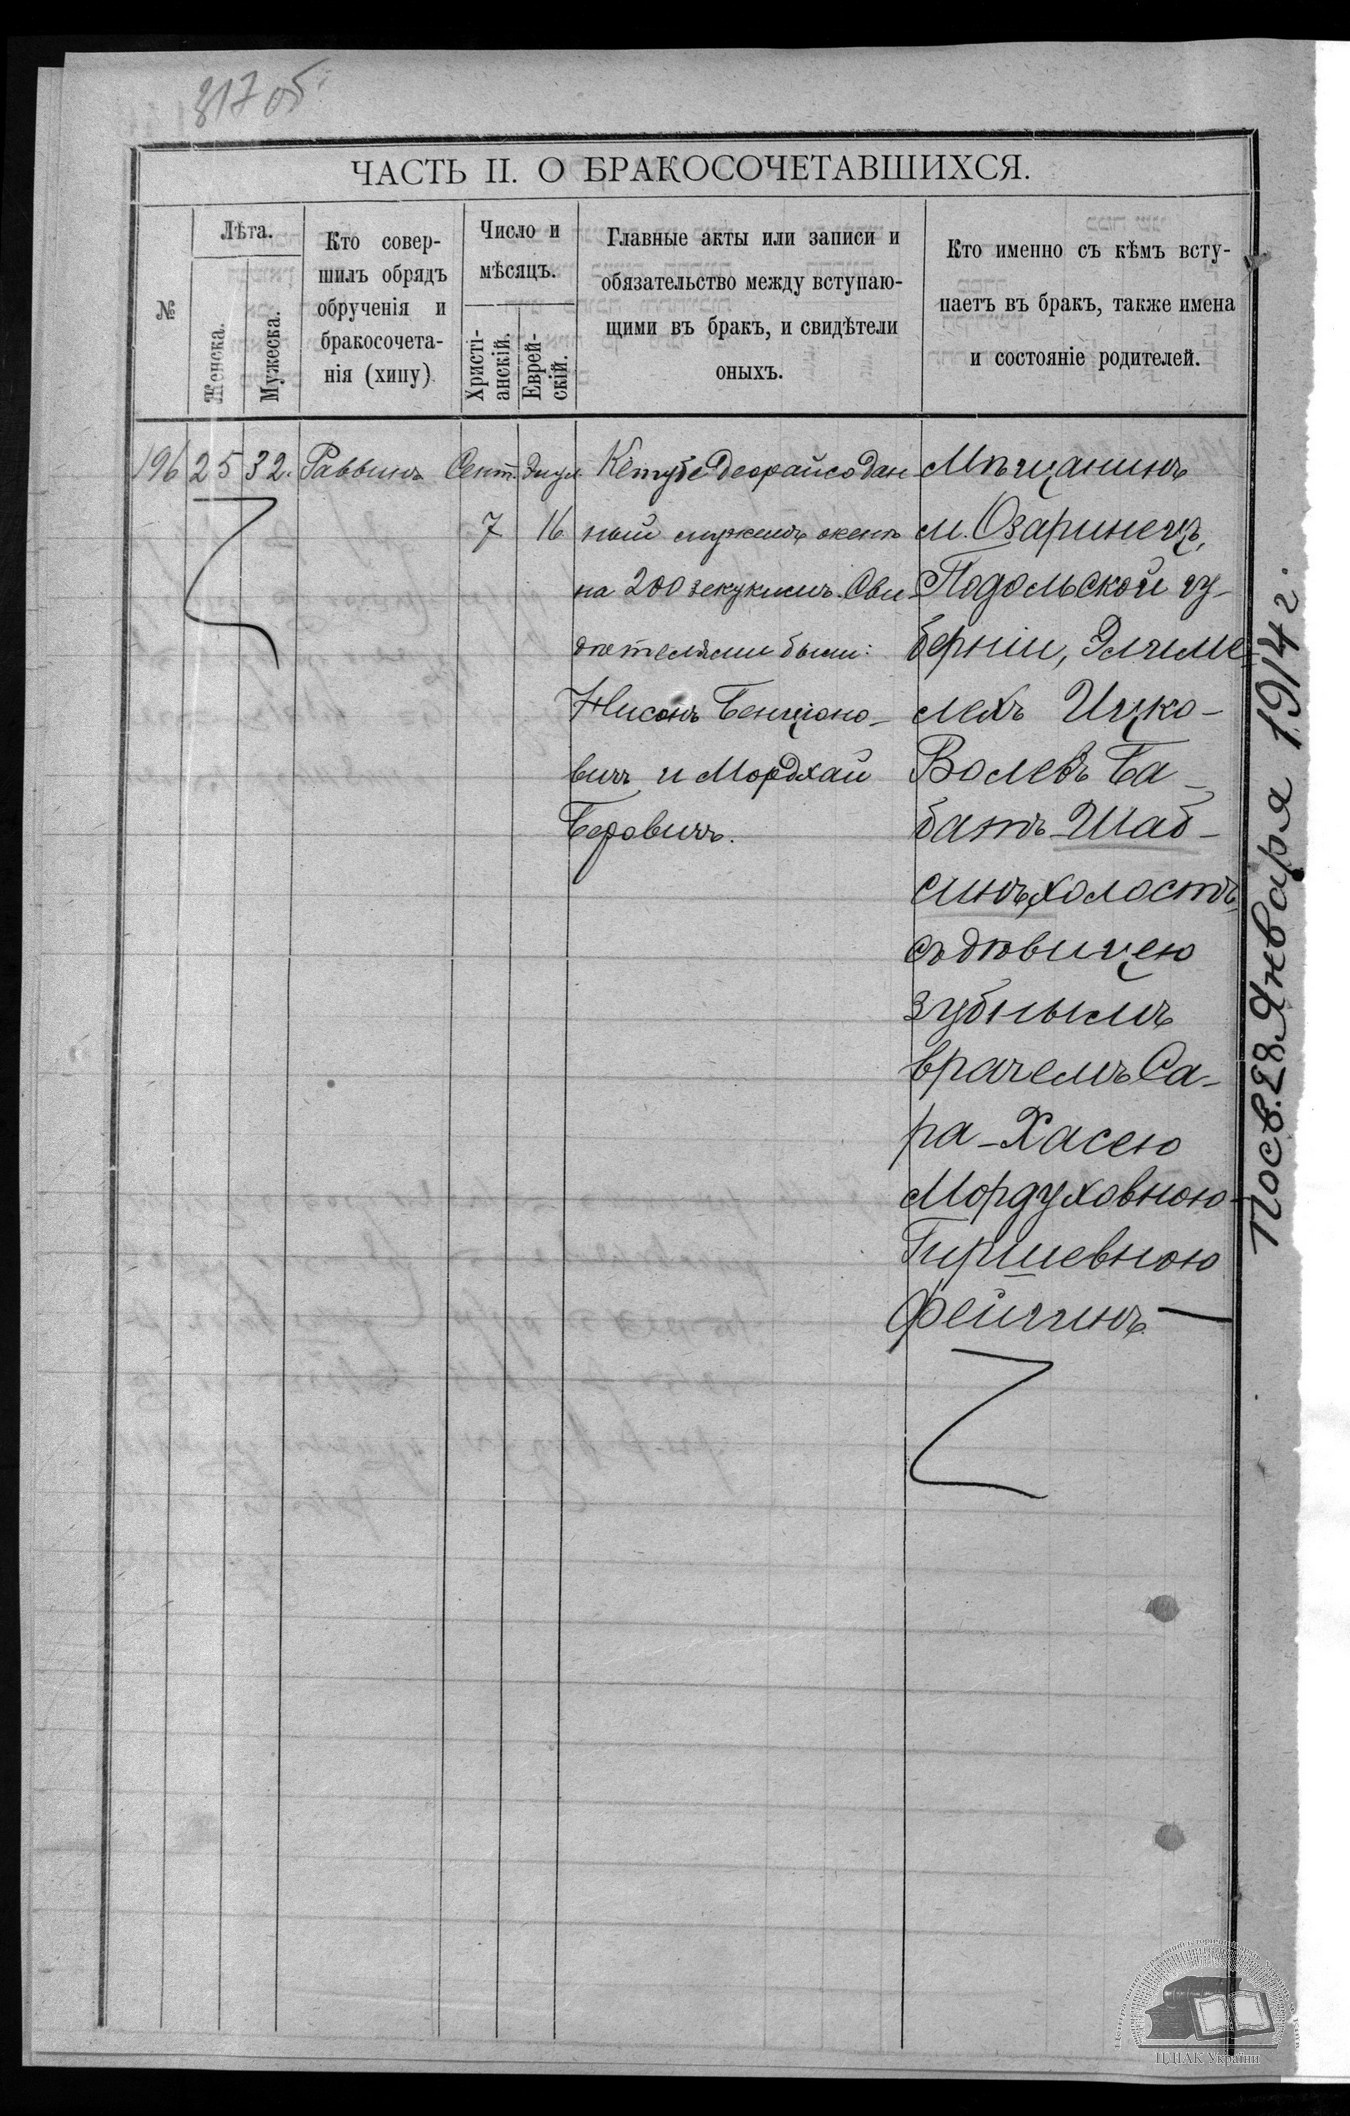 317 об.
ЧАСТЬ II. О БРАКОСОЧЕТАВШИХСЯ.
№
Лѣта.
Женска.
Мужеска.
Кто совер-
шилъ обрядъ
обрученія и
бракосочета-
нія (хипу)
Число и
мѣсяцъ.
Христі-
анскій.
Еврей-
скій.
Главные акты или записи и
обязательство между вступаю-
щими въ бракъ, и свидѣтели
оныхъ.
Кто именно съ кѣмъ всту-
паетъ въ бракъ, также имена
и состояніе родителей.
196
25
32.
Раввинъ
Сент.
7
Элул
16
Кетубе Деорайсо дан
ный мужемъ женѣ
на 200 зекукимъ. Сви-
дѣтелями были:
Нисонъ Бенціоно-
вичъ и Мордхай
Беровичъ.
Мѣщанинъ
м. Озаринецъ,
Подольской гу-
берніи, Элиме-
лехъ Ицко-
Волевъ Ба-
батъ-Шаб-
синъ, холостъ,
съ дѣвицею
зубнымъ
врачемъ Са-
ра-Хасею
Мордуховною-
Гиршевною
Фейгинъ —
Посв. 28 Января 1914 г.
ЦДІАК України